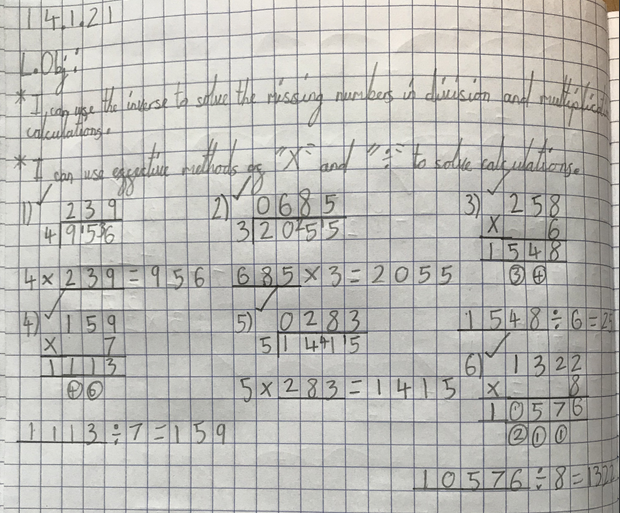 14.1.21
L.Obj:
* I can use the inverse to solve the missing numbers in division and multiplica
calculations.
* I can use effective methods of "X" and "÷" to solve calculations.
1) 239
4 9 5 6
4 × 239 = 956
2) 0685
3 2 0 5 5
685 × 3 = 2055
3) 258
× 6
1548
3 4
1548 ÷ 6 = 2
4) 159
× 7
1113
4 6
1113 ÷ 7 = 159
5) 0283
5 1 4 1 5
5 × 283 = 1415
6) 1322
× 8
10576
2 1 1
10576 ÷ 8 = 1322